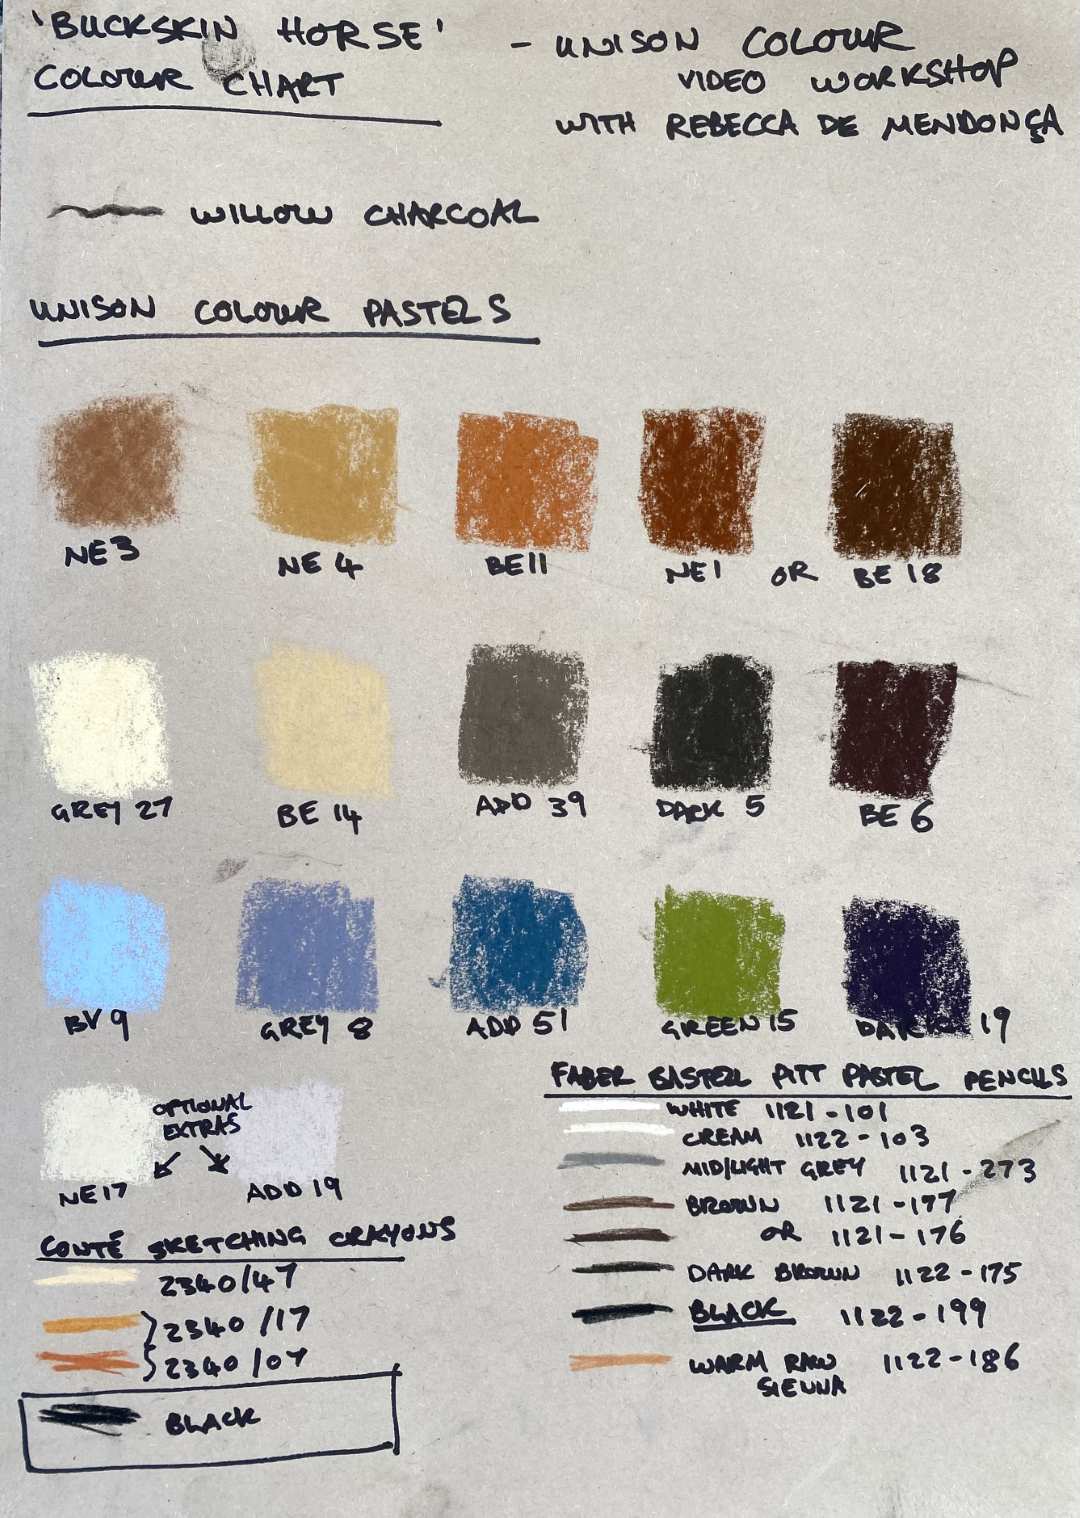 'BUCKSKIN HORSE'
COLOUR CHART
- UNISON COLOUR
VIDEO WORKSHOP
WITH REBECCA DE MENDONÇA
WILLOW CHARCOAL
UNISON COLOUR PASTELS
NE 3
NE 4
BE 11
NE 1 OR BE 18
GREY 27
BE 14
ADD 39
DARK 5
BE 6
BV 9
GREY 8
ADD 51
GREEN 15
DARK 19
OPTIONAL
EXTRAS
NE 17
ADD 19
CONTÉ SKETCHING CRAYONS
2340/47
2340/17
2340/07
BLACK
FABER CASTELL PITT PASTEL PENCILS
WHITE 1121-101
CREAM 1122-103
MID/LIGHT GREY 1121-273
BROWN 1121-177
OR 1121-176
DARK BROWN 1122-175
BLACK 1122-199
WARM RAW 1122-186
SIENNA